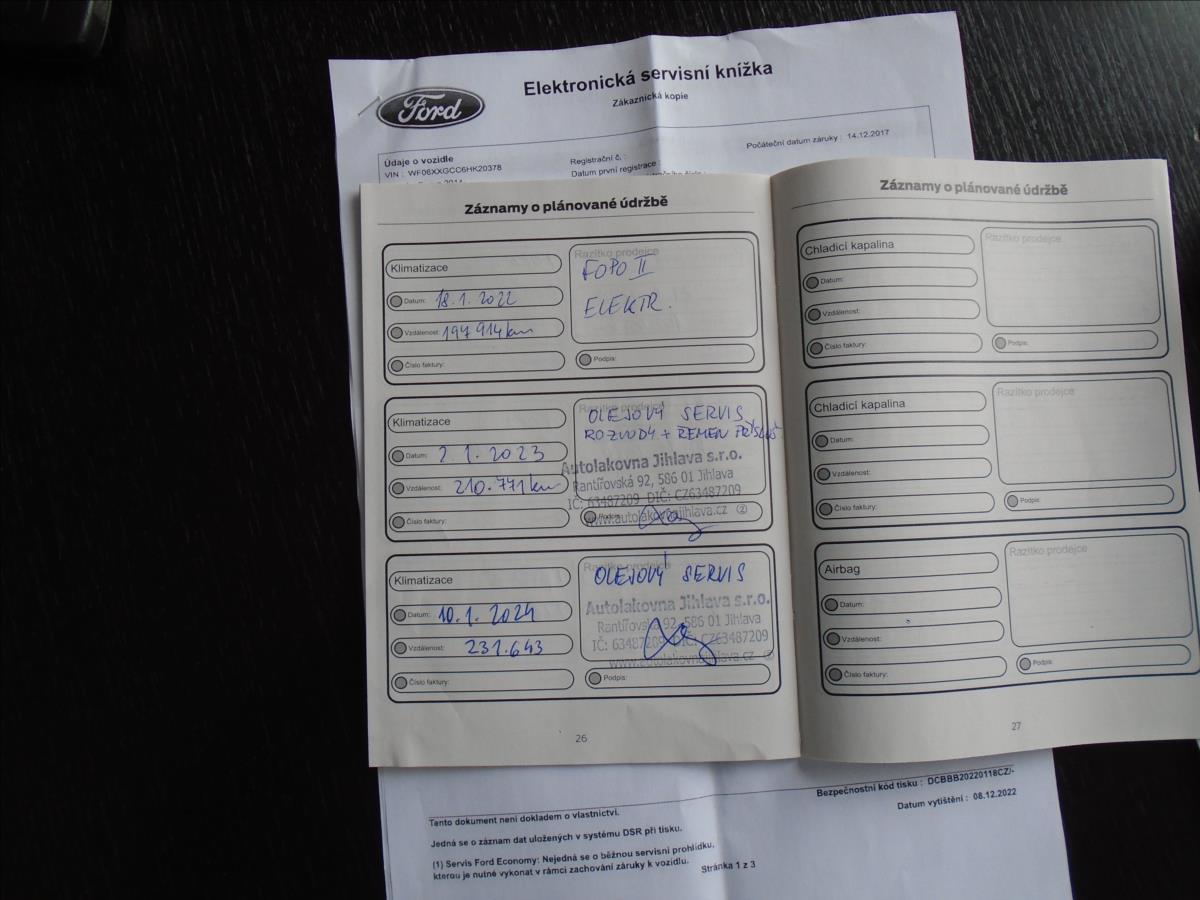 Ford
Elektronická servisní knížka
Zákaznická kopie
Údaje o vozidle
VIN : WF06XXGCC6HK20378
Registrační č. :
Datum první registrace :
Počáteční datum záruky : 14.12.2017
Záznamy o plánované údržbě
Klimatizace
Datum: 18.1.2022
Vzdálenost: 197 914 km
Číslo faktury:
Razítko prodejce
FOPO II
ELEKTR.
Podpis:
Klimatizace
Datum: 2.1.2023
Vzdálenost: 210.771 km
Číslo faktury:
OLEJOVÝ SERVIS
ROZVODY + ŘEMEN
Autolakovna Jihlava s.r.o.
Rantířovská 92, 586 01 Jihlava
IČ: 63487209 DIČ: CZ63487209
www.autolakovnajihlava.cz 2
Podpis:
Klimatizace
Datum: 10.1.2024
Vzdálenost: 231.643
Číslo faktury:
Razítko prodejce
OLEJOVÝ SERVIS
Autolakovna Jihlava s.r.o.
Rantířovská 92, 586 01 Jihlava
IČ: 63487209 DIČ: CZ63487209
www.autolakovnajihlava.cz 2
Podpis:
26
Záznamy o plánované údržbě
Chladicí kapalina
Datum:
Vzdálenost:
Číslo faktury:
Razítko prodejce
Podpis:
Chladicí kapalina
Datum:
Vzdálenost:
Číslo faktury:
Razítko prodejce
Podpis:
Airbag
Datum:
Vzdálenost:
Číslo faktury:
Razítko prodejce
Podpis:
27
Bezpečnostní kód tisku : DCBBB20220118CZ/-
Datum vytištění : 08.12.2022
Tento dokument není dokladem o vlastnictví.
Jedná se o záznam dat uložených v systému DSR při tisku.
(1) Servis Ford Economy: Nejedná se o běžnou servisní prohlídku,
kterou je nutné vykonat v rámci zachování záruky k vozidlu.
Stránka 1 z 3